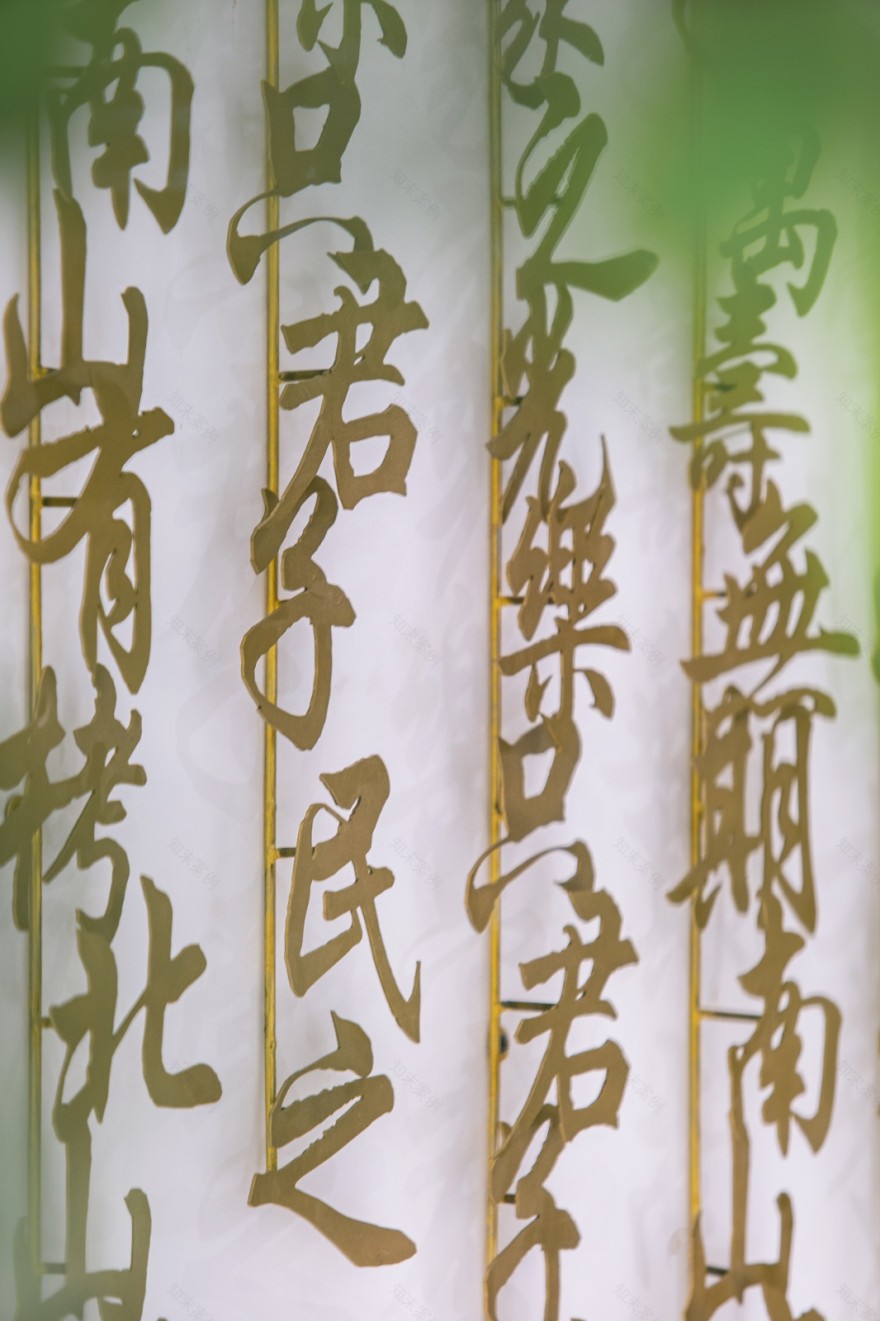 萬壽無期南山
家之光樂只君子
樂只君子民之
南山有栲北山